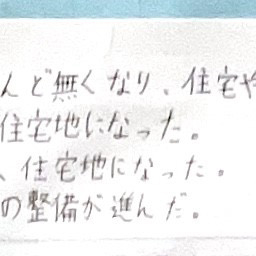 んど無くなり、住宅や
住宅地になった。
、住宅地になった。
の整備が進んだ。